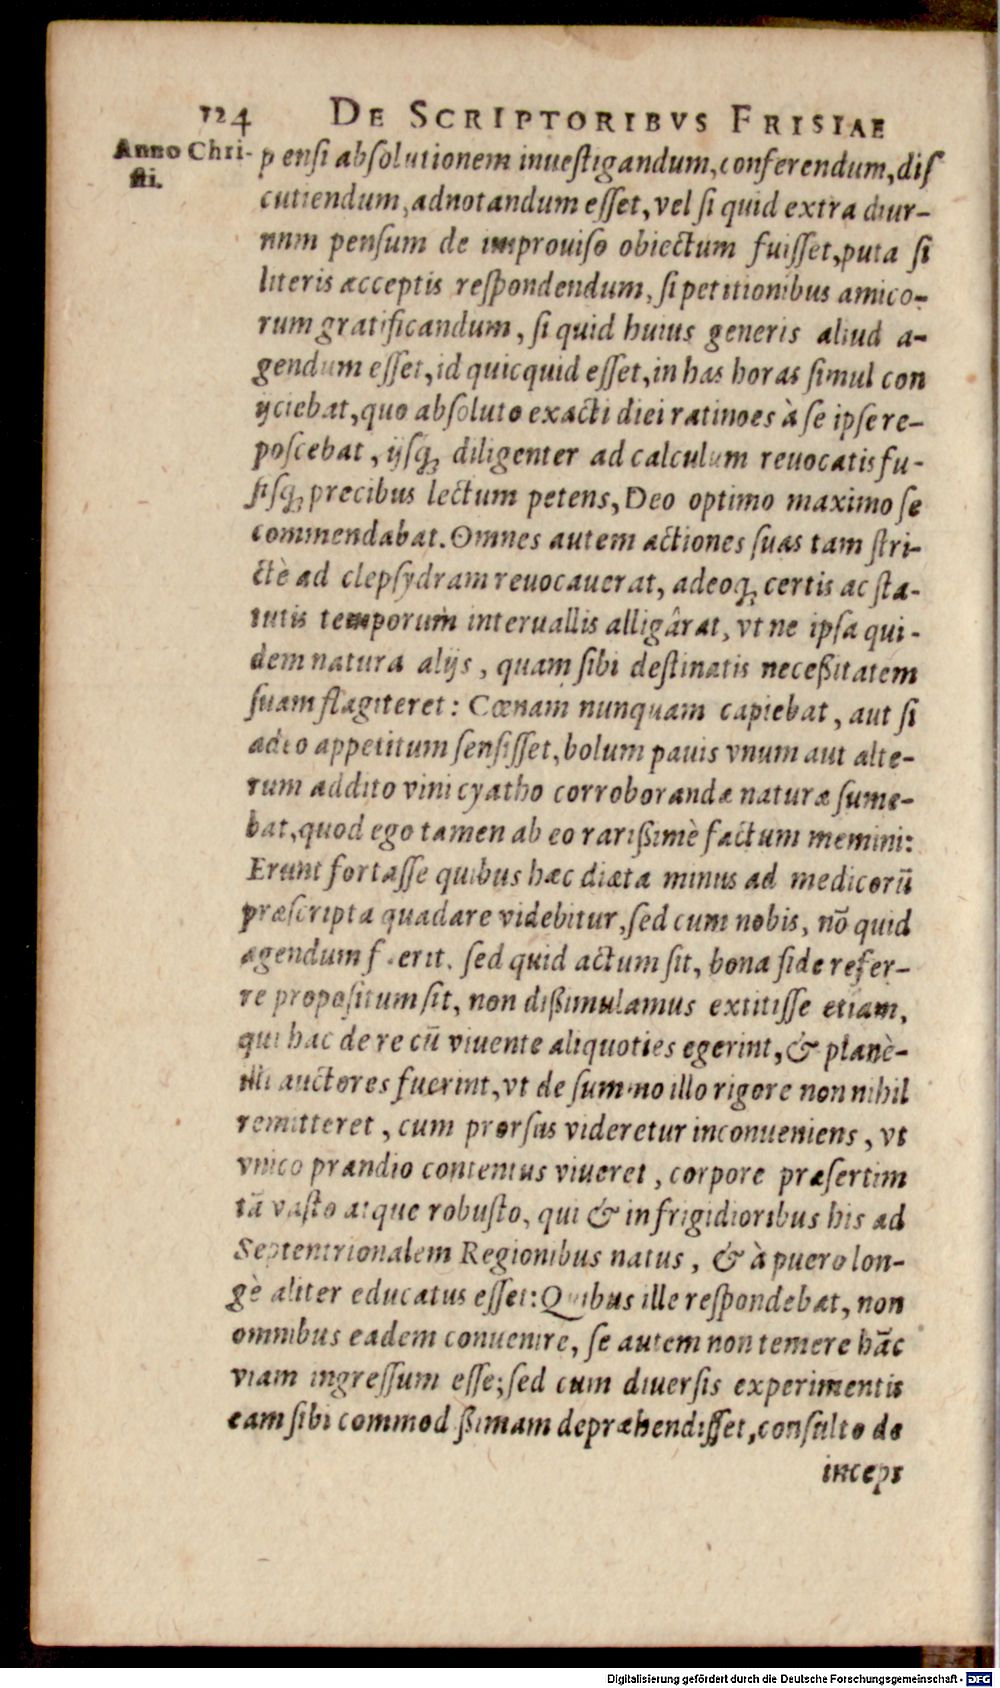 124 DE SCRIPTORIBVS FRISIAE
Anno Chri-
sti.
pensi absolutionem inuestigandum, conferendum, dis
cutiendum, adnotandum esset, vel si quid extra diur-
nnm pensum de improuiso obiectum fuisset, puta si
literis acceptis respondendum, si petitionibus amico-
rum gratificandum, si quid huius generis aliud a-
gendum esset, id quicquid esset, in has horas simul con
ijciebat, quo absoluto exacti diei ratinoes à se ipse re-
poscebat, ijsq; diligenter ad calculum reuocatis fu-
sisq; precibus lectum petens, Deo optimo maximo se
commendabat. Omnes autem actiones suas tam stri-
ctè ad clepsydram reuocauerat, adeoq; certis ac sta-
tutis temporum interuallis alligârat, vt ne ipsa qui-
dem natura alijs, quam sibi destinatis neceßitatem
suam flagiteret: Cœnam nunquam capiebat, aut si
adeo appetitum sensisset, bolum pauis vnum aut alte-
rum addito vini cyatho corroborandæ naturæ sume-
bat, quod ego tamen ab eo rarißimè factum memini:
Erunt fortasse quibus hæc diæta minus ad medicorũ
præscripta quadare videbitur, sed cum nobis, nõ quid
agendum f erit. sed quid actum sit, bona side refer-
re propositum sit, non dißimulamus extitisse etiam,
qui hac de re cũ viuente aliquoties egerint, & planè-
illi auctores fuerint, vt de summo illo rigore non nihil
remitteret, cum prorsus videretur inconueniens, vt
vnico prandio contentus viueret, corpore præsertim
tã vasto atque robusto, qui & in frigidioribus his ad
Septentrionalem Regionibus natus, & à puero lon-
gè aliter educatus esset: Quibus ille respondebat, non
omnibus eadem conuenire, se autem non temere hãc
viam ingressum esse; sed cum diuersis experimentis
eam sibi commod ßimam depræhendisset, consulto de
incepr
Digitalisierung gefördert durch die Deutsche Forschungsgemeinschaft - DFG